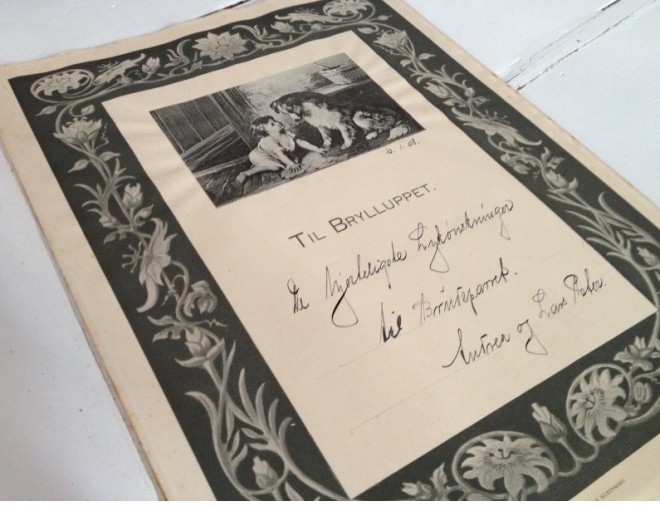 6.1.08.
TIL BRYLLUPPET.
De hjerteligste Lykönskninger
til Brudeparret.
og Lars